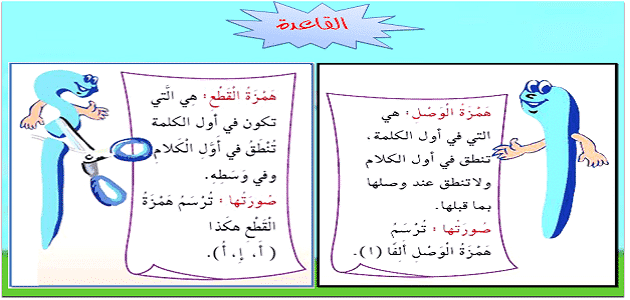 القاعدة
هَمْزَةُ الْوَصْلِ : هي
التي في أول الكلمة،
تنطق في أول الكلام
ولاتنطق عند وصلها
بما قبلها.
صُورَتُها : تُرْسَمُ
هَمْزَةُ الْوَصْلِ أَلِفًا (ا).
هَمْزَةُ الْقَطْعِ : هِيَ الَّتي
تكون في أول الكلمة
تُنْطَقُ في أَوَّلِ الْكَلَامِ
وفي وَسَطِهِ.
صُورَتُها : تُرْسَمُ هَمْزَةُ
الْقَطْعِ هكَذا
(أَ، إِ، أُ).